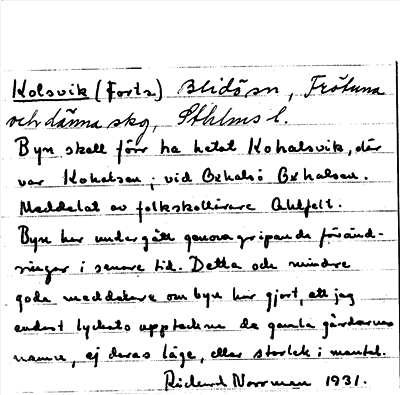 Kolsvik (Forts.) Blidö sn, Frötuna
och Länna skg, Sthlms l.
Byn skall förr ha hetat Kohalsvik, där
var Kohalsen; vid Oxhalsö Oxhalsen.
Meddelat av folkskollärare Ahlfelt.
Byn har undergått genomgripande föränd-
ringar i senare tid. Detta och mindre
goda meddelare om byn har gjort, att jag
endast lyckats uppteckna de gamla gårdarnas
namn, ej deras läge, eller storlek i mantal.
Rickard Norrman 1931.